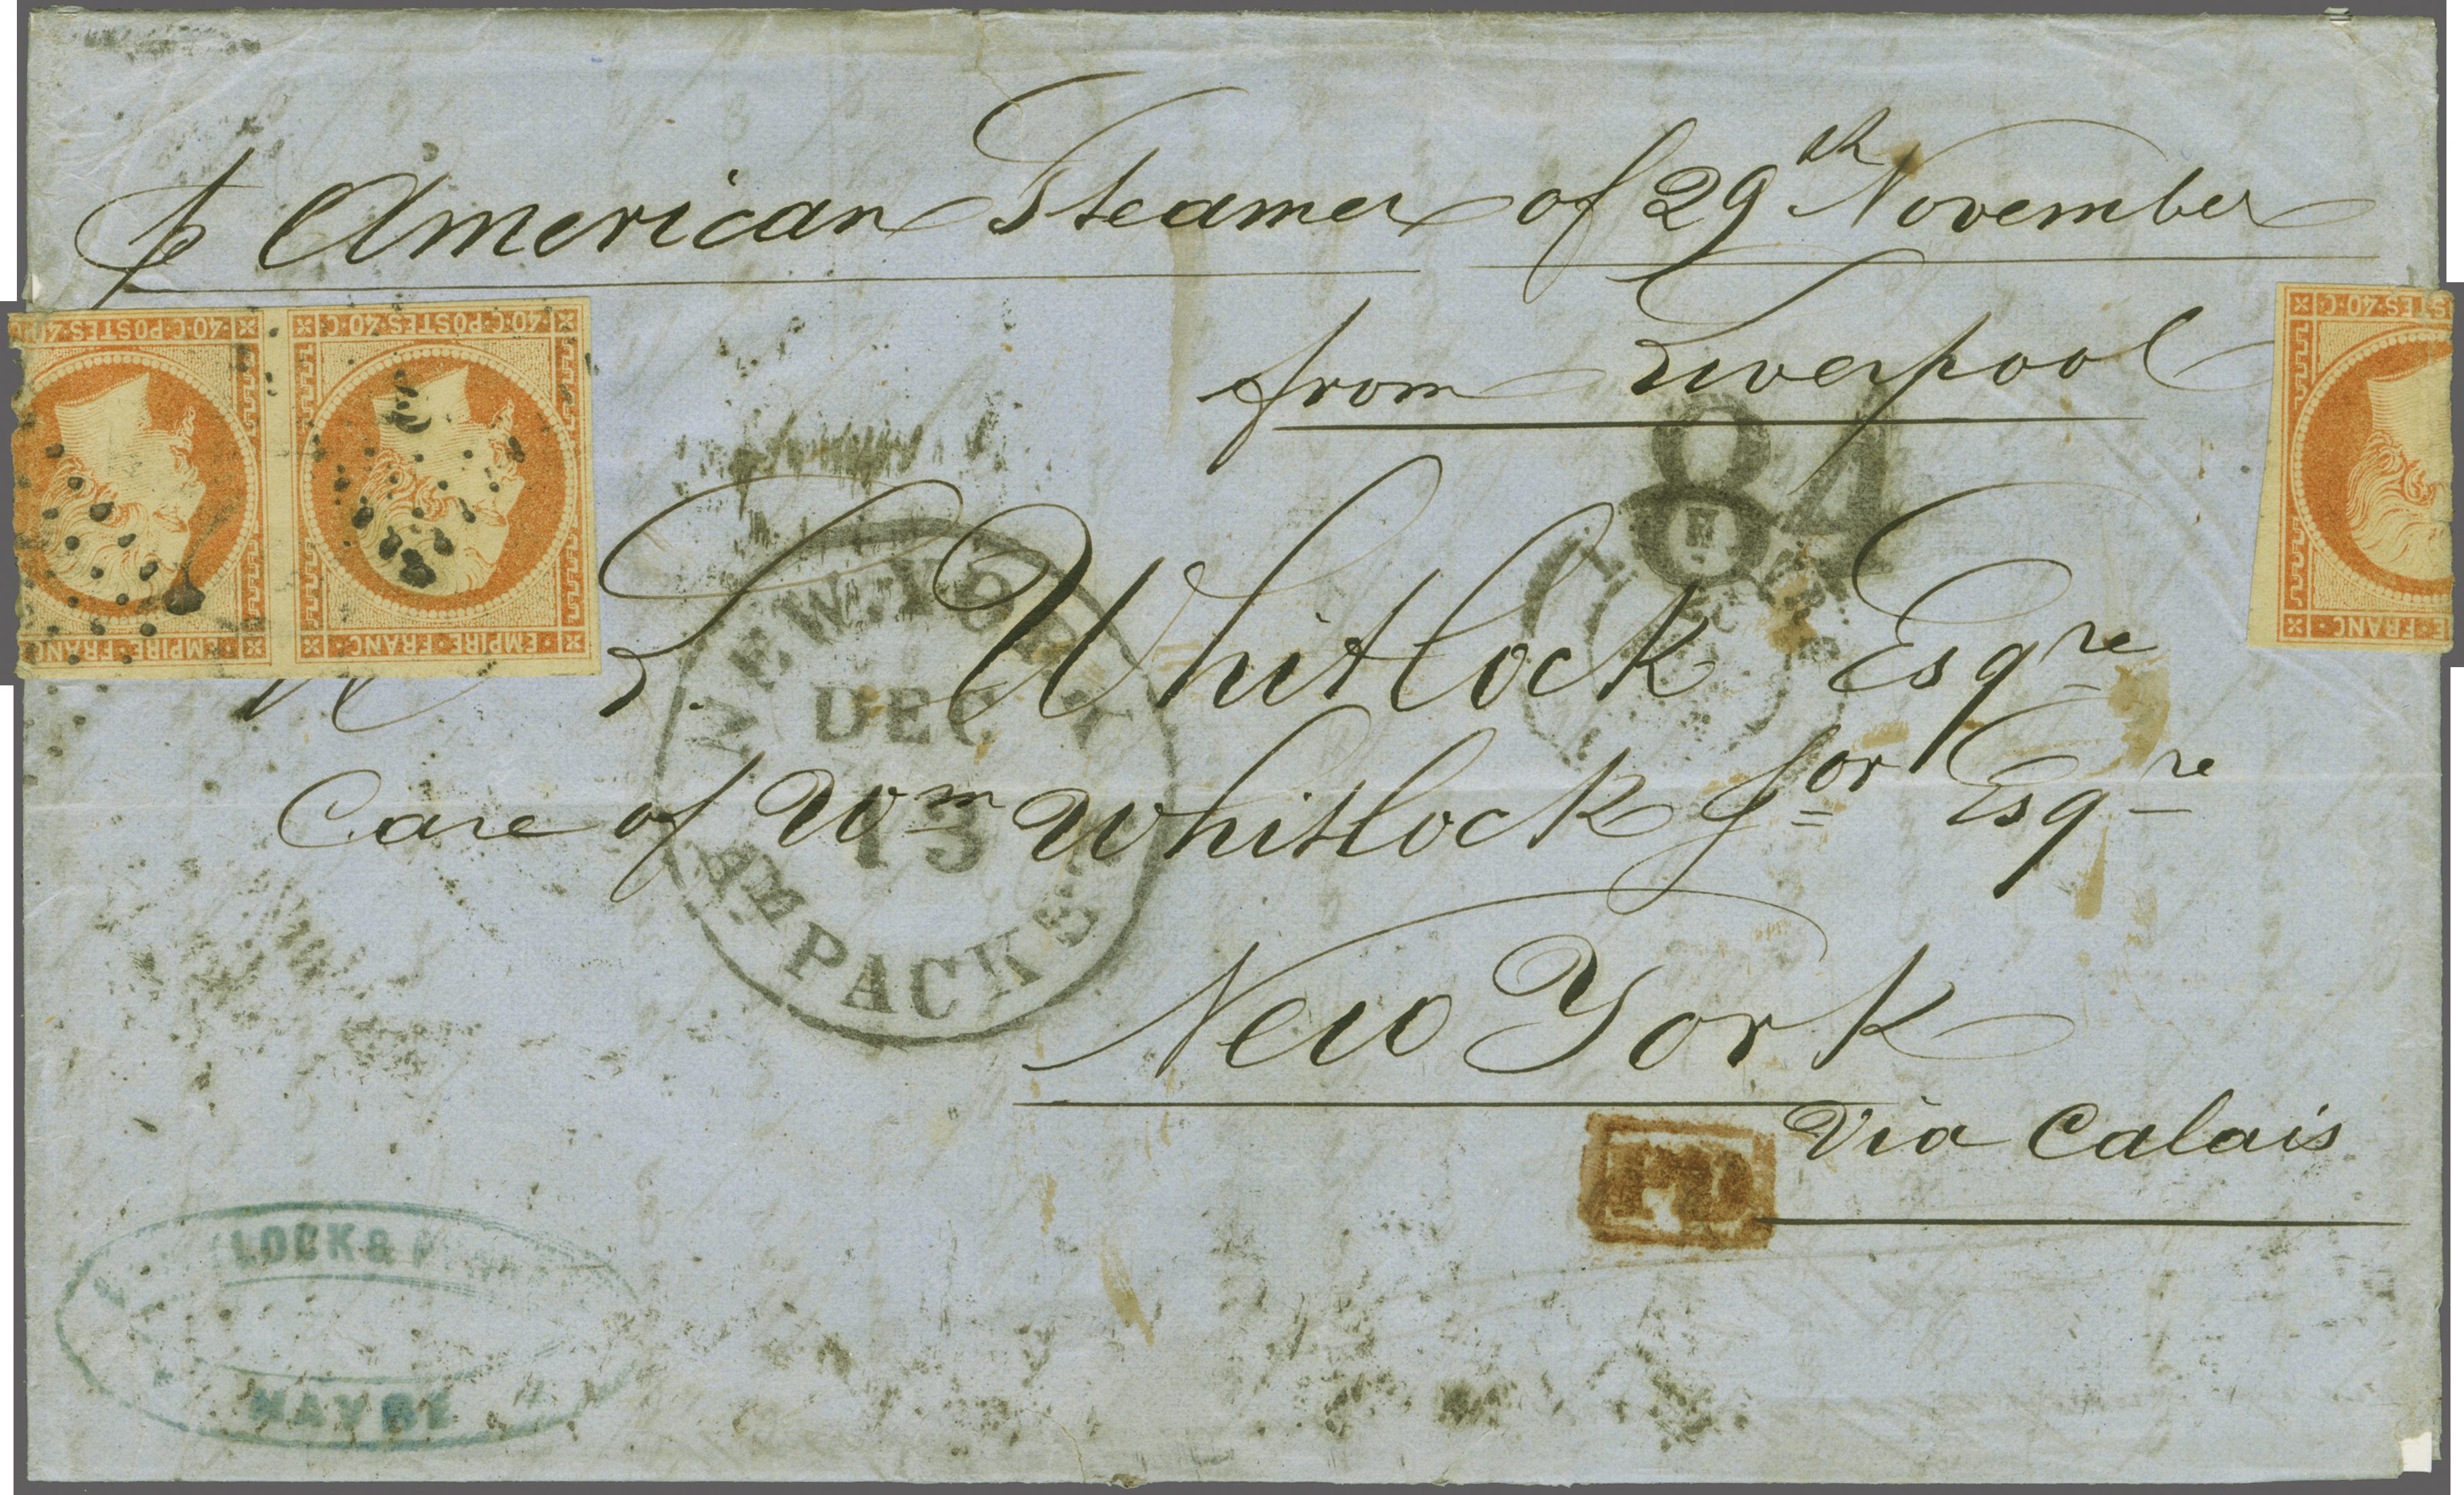 p American Steamer of 29th November
from Liverpool
40·C·POSTES·40·C
40·C·POSTES·40·C·
EMPIRE·FRANC
EMPIRE·FRANC
S·40·C·
E·FRANC
84
L. Whitlock Esqre
Care of Wm Whitlock Jor Esqre
New York
Via Calais
NEW YORK
DEC
13
AM PACKE
PD
LOCK &
HAVRE